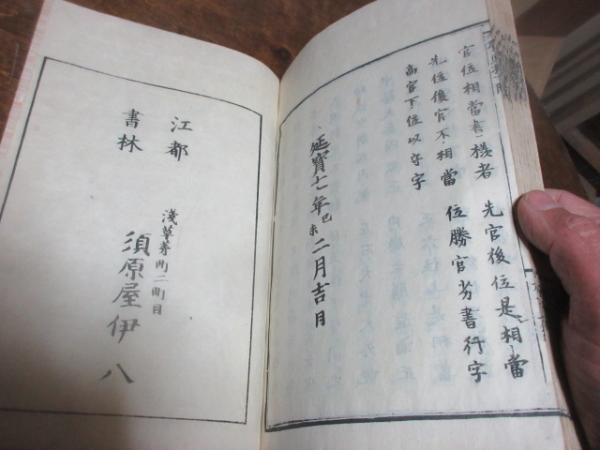 官位相當書樣者 先官後位是相當
先位後官不相當 位勝官劣書行字
高官下位以守字
延寶七年己未二月吉日
江都
書林
淺草茅町二町目
須原屋伊八